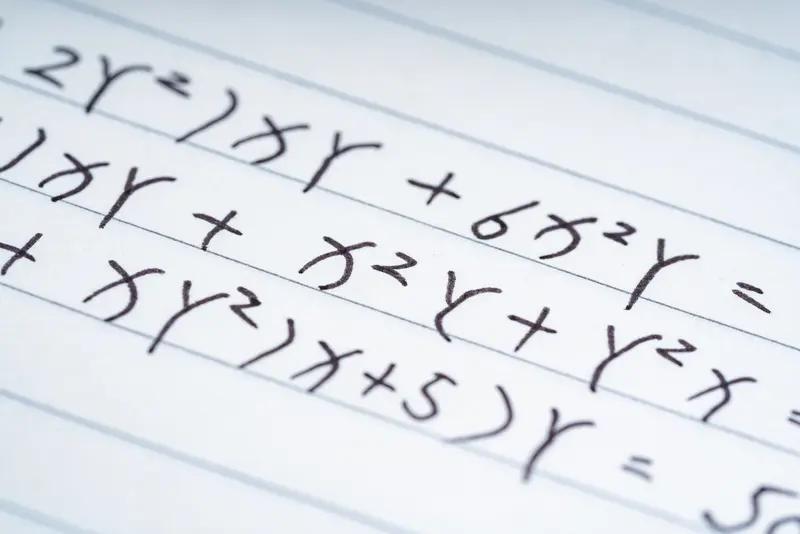 2y²)xy + 6x²y =
)xy + x²y + y²x =
+ xy²)x+5)y = 50